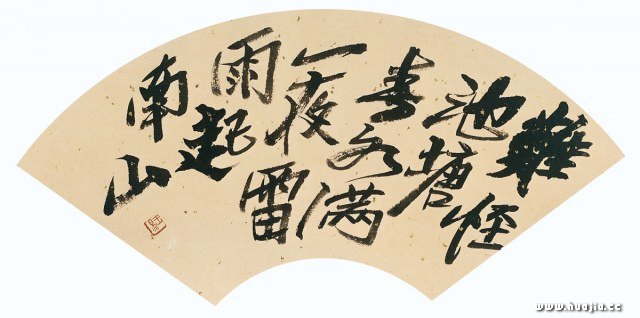 難怪
池塘
春水满
一夜雷
雨起
南山
www.huajia.cc